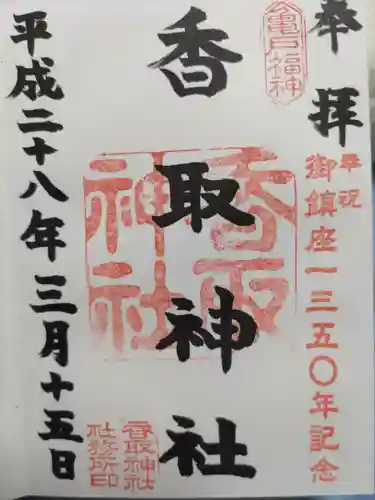 奉拝
亀戸福神
奉祝
御鎮座一三五〇年記念
香取神社
香取神社
香取神社
社務所印
平成二十八年三月十五日